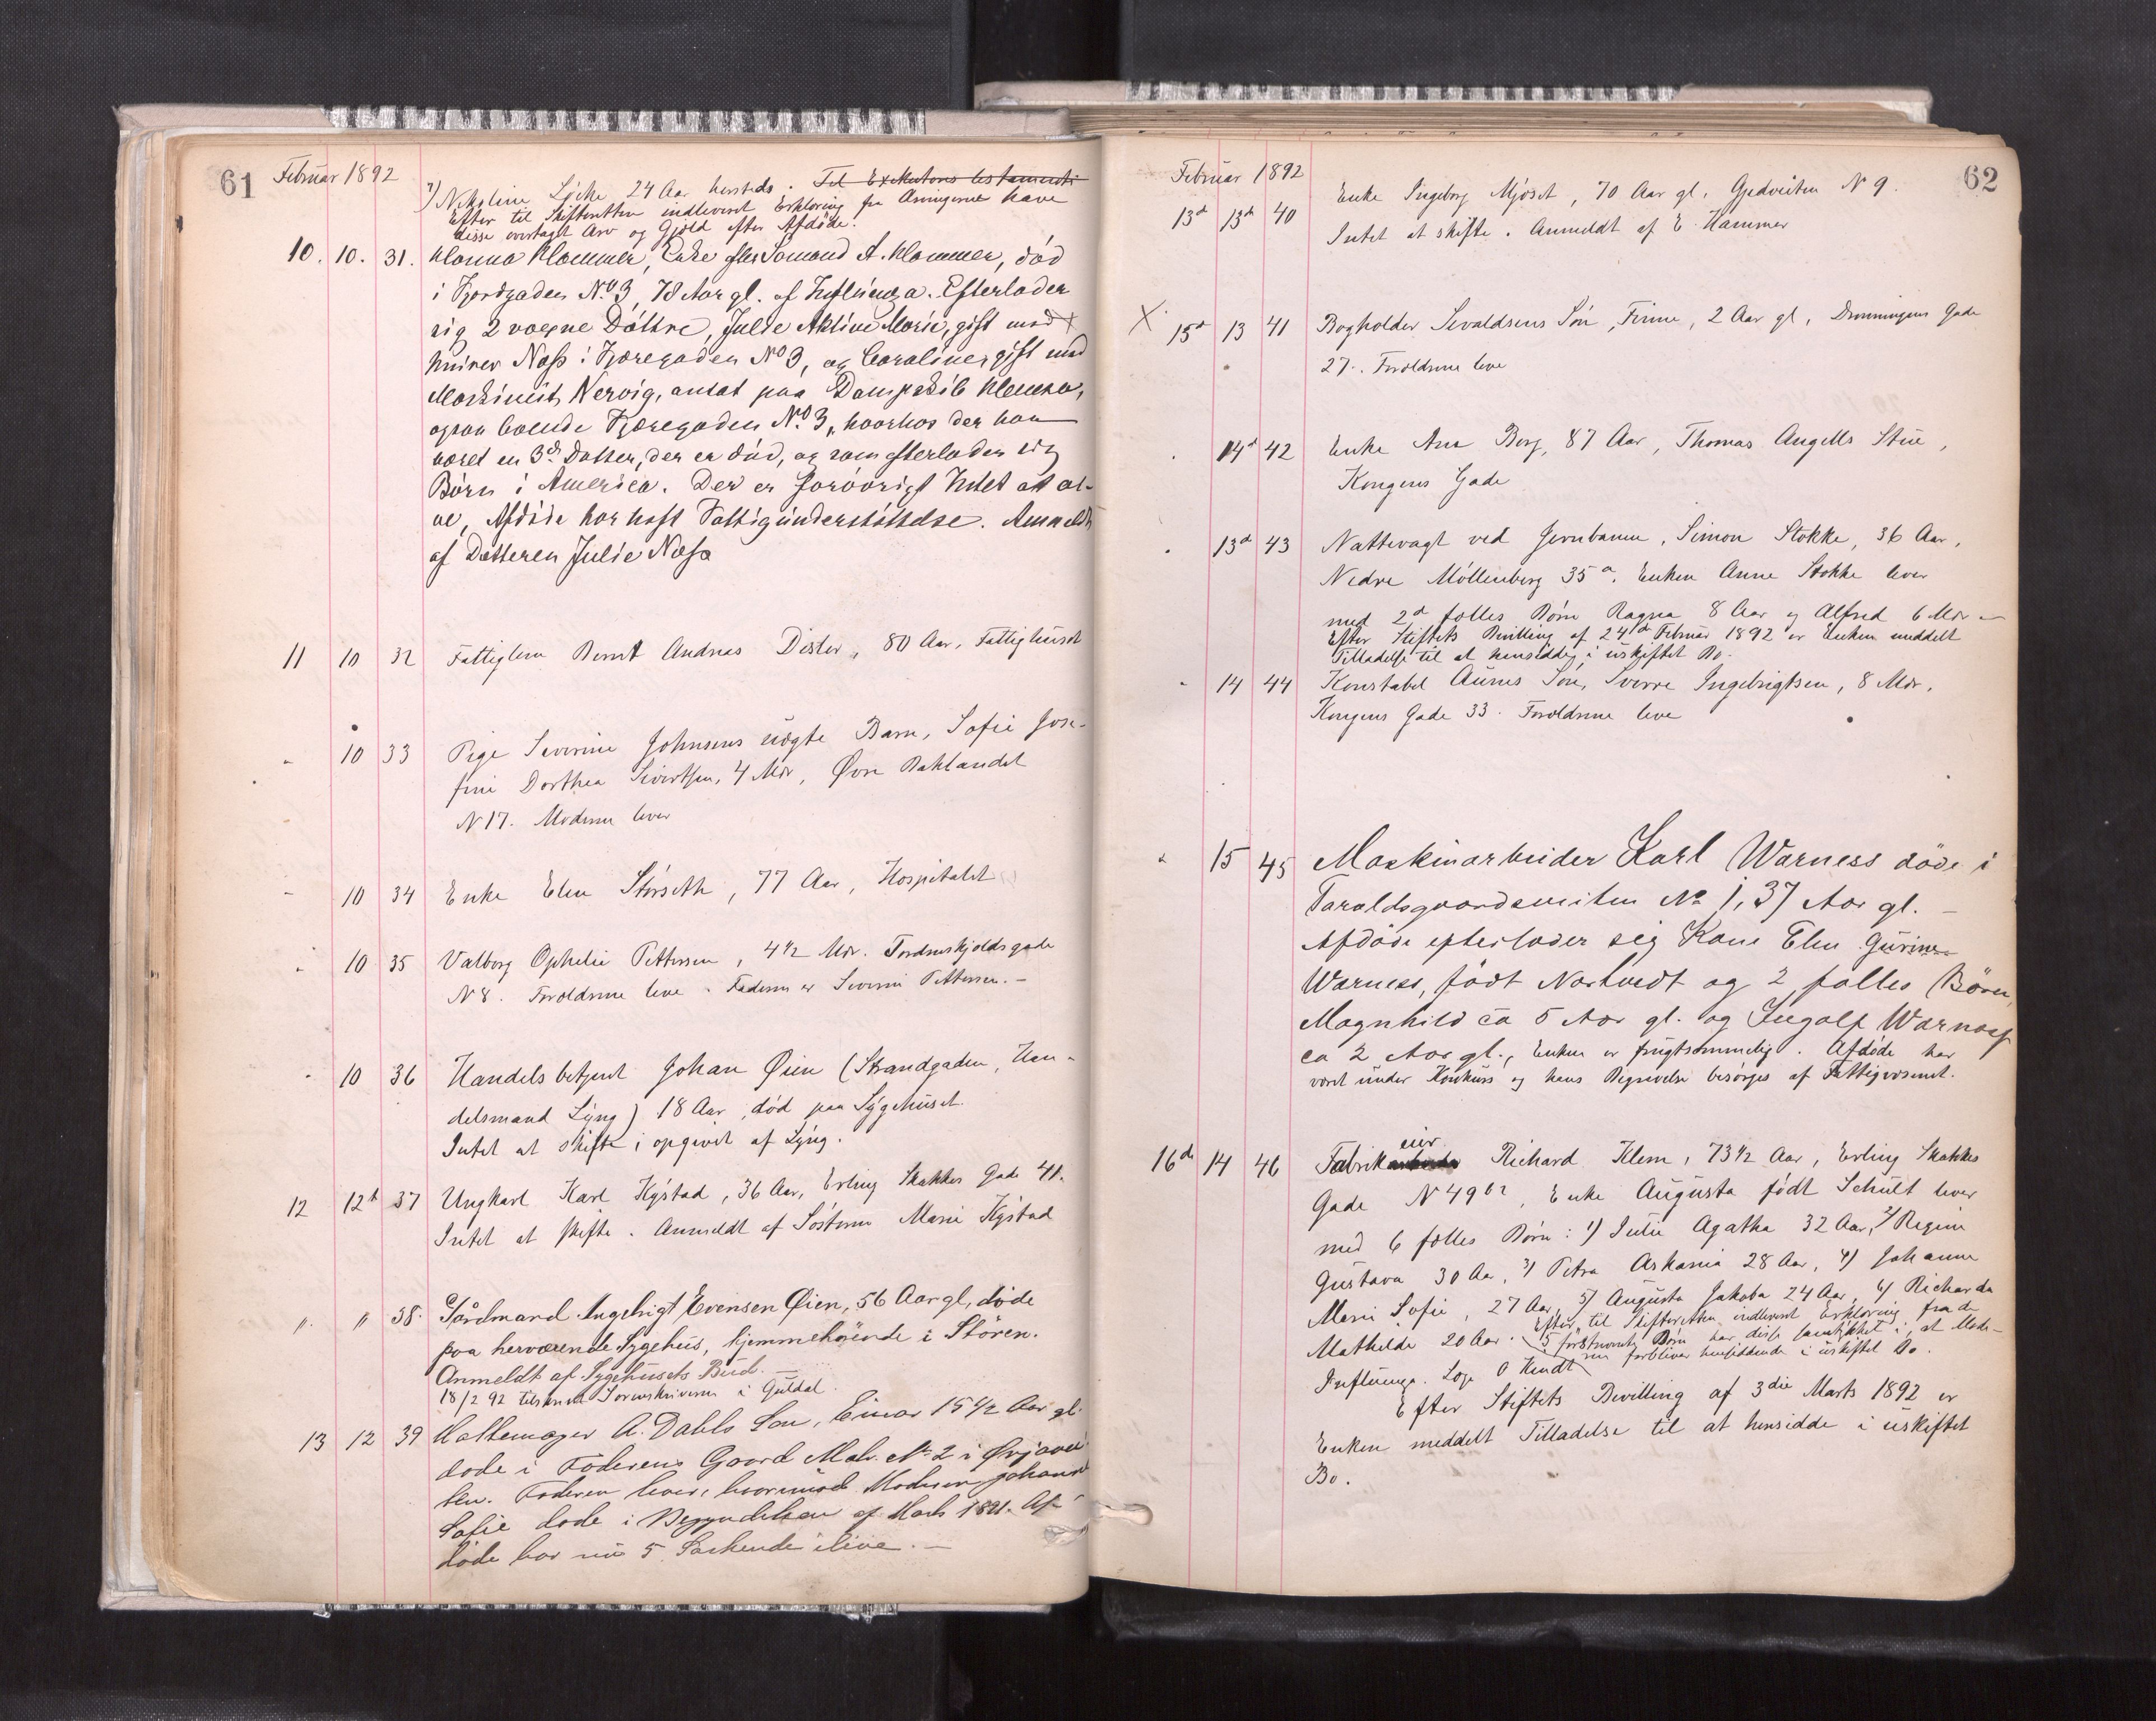 61
Februar 1892
7) Nikoline Lyche 24 Aar hersteds. Til Exekutores testamenti
Efter til Skifteretten indleveret Erklæring fra Arvingerne have
disse overtaget Arv og Gjæld efter Afdøde.
10. 10. 31. Hanna Hammer, Enke efter Sømand A. Hammer, død
i Fjordgaden No 3, 78 Aar gl. af Influenza. Efterlader
sig 2 voxne Døttre, Julie Aktine Marie, gift med
Murer Næss i Fjæregaden No 3, og Caroline, gift med
Maskinist Nervig, ansat paa Dampskib
ogsaa boende Fjæregaden No 3, hvorhos der har
været en 3de Datter, der er død, og som efterlader sig
Børn i America. Der er forøvrigt Intet at ar-
ve, Afdøde har havt Fattigunderstøttelse. Anmeldt
af Datteren Julie Næss
11 10 32 Fattiglem Bernt Andreas Dister, 80 Aar, Fattighuset
" 10 33 Pige Severine Johnsens uægte Barn, Sofie Jose-
fine Dorthea Sivertsen, 4 Mdr, Øvre Baklandet
N 17. Moderen lever
" 10 34 Enke Elen Storseth, 77 Aar, Hospitalet
" 10 35 Valborg Ophelie Pettersen, 4 1/2 Mdr. Tordenskjoldsgade
N 8. Forældrene leve. Faderen er Severin Pettersen. –
" 10 36 Handelsbetjent Johan Øien (Strandgaden, Han-
delsmand Lyng) 18 Aar, død paa Sygehuset.
Intet at skifte, opgivet af Lyng.
12 12te 37 Ungkarl Karl Kystad, 36 Aar, Erling Skakkes Gade 41.
Intet at skifte. Anmeldt af Søsteren Marie Kystad
" " 38. Gårdmand Ingebrigt Evensen Øien, 56 Aar gl, døde
paa herværende Sygehus, hjemmehørende i Støren.
Anmeldt af Sygehusets Bud. –
18/2 92 tilskrevet Sorenskriveren i Guldal.
13 12 39 Hattemager A. Dahls Søn, Einar 15 1/2 Aar gl.
døde i Faderens Gaard Matr. No 2 i
ten. Faderen lever, hvorimod Moderen Johanne
Sofie døde i Begyndelsen af Marts 1891. Af-
døde har nu 5 Søskende ilive. –
62
Februar 1892
13d 13de 40 Enke Ingeborg Mjøset, 70 Aar gl, Gjedveiten N 9.
Intet at skifte. Anmeldt af E. Hammer
X 15d 13 41 Bogholder Sevaldsens Søn, Finne, 2 Aar gl, Dronningens Gade
27. Forældrene leve
" 14d 42 Enke Ane Berg, 87 Aar, Thomas Angells Stue,
Kongens Gade
" 13d 43 Nattevagt ved Jernbanen, Simon Stokke, 36 Aar,
Nedre Møllenberg 35a. Enken Anne Stokke lever
med 2d fælles Børn Ragna 8 Aar og Alfred 6 Mdr –
Efter Stiftets Bevilling af 24de Februar 1892 er Enken meddelt
Tilladelse til at hensidde i uskiftet Bo.
" 14 44 Konstabel Aunes Søn, Sverre Ingebrigtsen, 8 Mdr,
Kongens Gade 33. Forældrene leve
" 15 45 Maskinarbeider Karl Warness døde i
Taraldsgaardsveiten No 1, 37 Aar gl. –
Afdøde efterlader sig Kone Elen Gurine
Warness, født Norhvedt og 2 fælles Børn,
Magnhild ca 5 Aar gl. og Ingolf Warness
ca 2 Aar gl., Enken er frugtsommelig. Afdøde har
været under Konkurs og hans Begravelse besørges af Fattigvæsenet.
16de 14 46 Fabrikeier Richard Klem, 73 1/2 Aar, Erling Skakkes
Gade N 49 b2, Enke Augusta født Schult lever
med 6 fælles Børn: 1) Julie Agatha 32 Aar, 2) Regine
Gustava 30 Aar, 3) Petra Askania 28 Aar, 4) Johanne
Marie Sofie, 27 Aar, 5) Augusta Jakoba 24 Aar, 6) Richarda
Mathilde 20 Aar. Efter til Skifteretten indleveret Erklæring fra de
5 førstnævnte Børn har disse samtykket i, at Mode-
ren forbliver hensiddende i uskiftet Bo.
Influenza. Loge O Kindt
Efter Stiftets Bevilling af 3die Marts 1892 er
Enken meddelt Tilladelse til at hensidde i uskiftet
Bo.